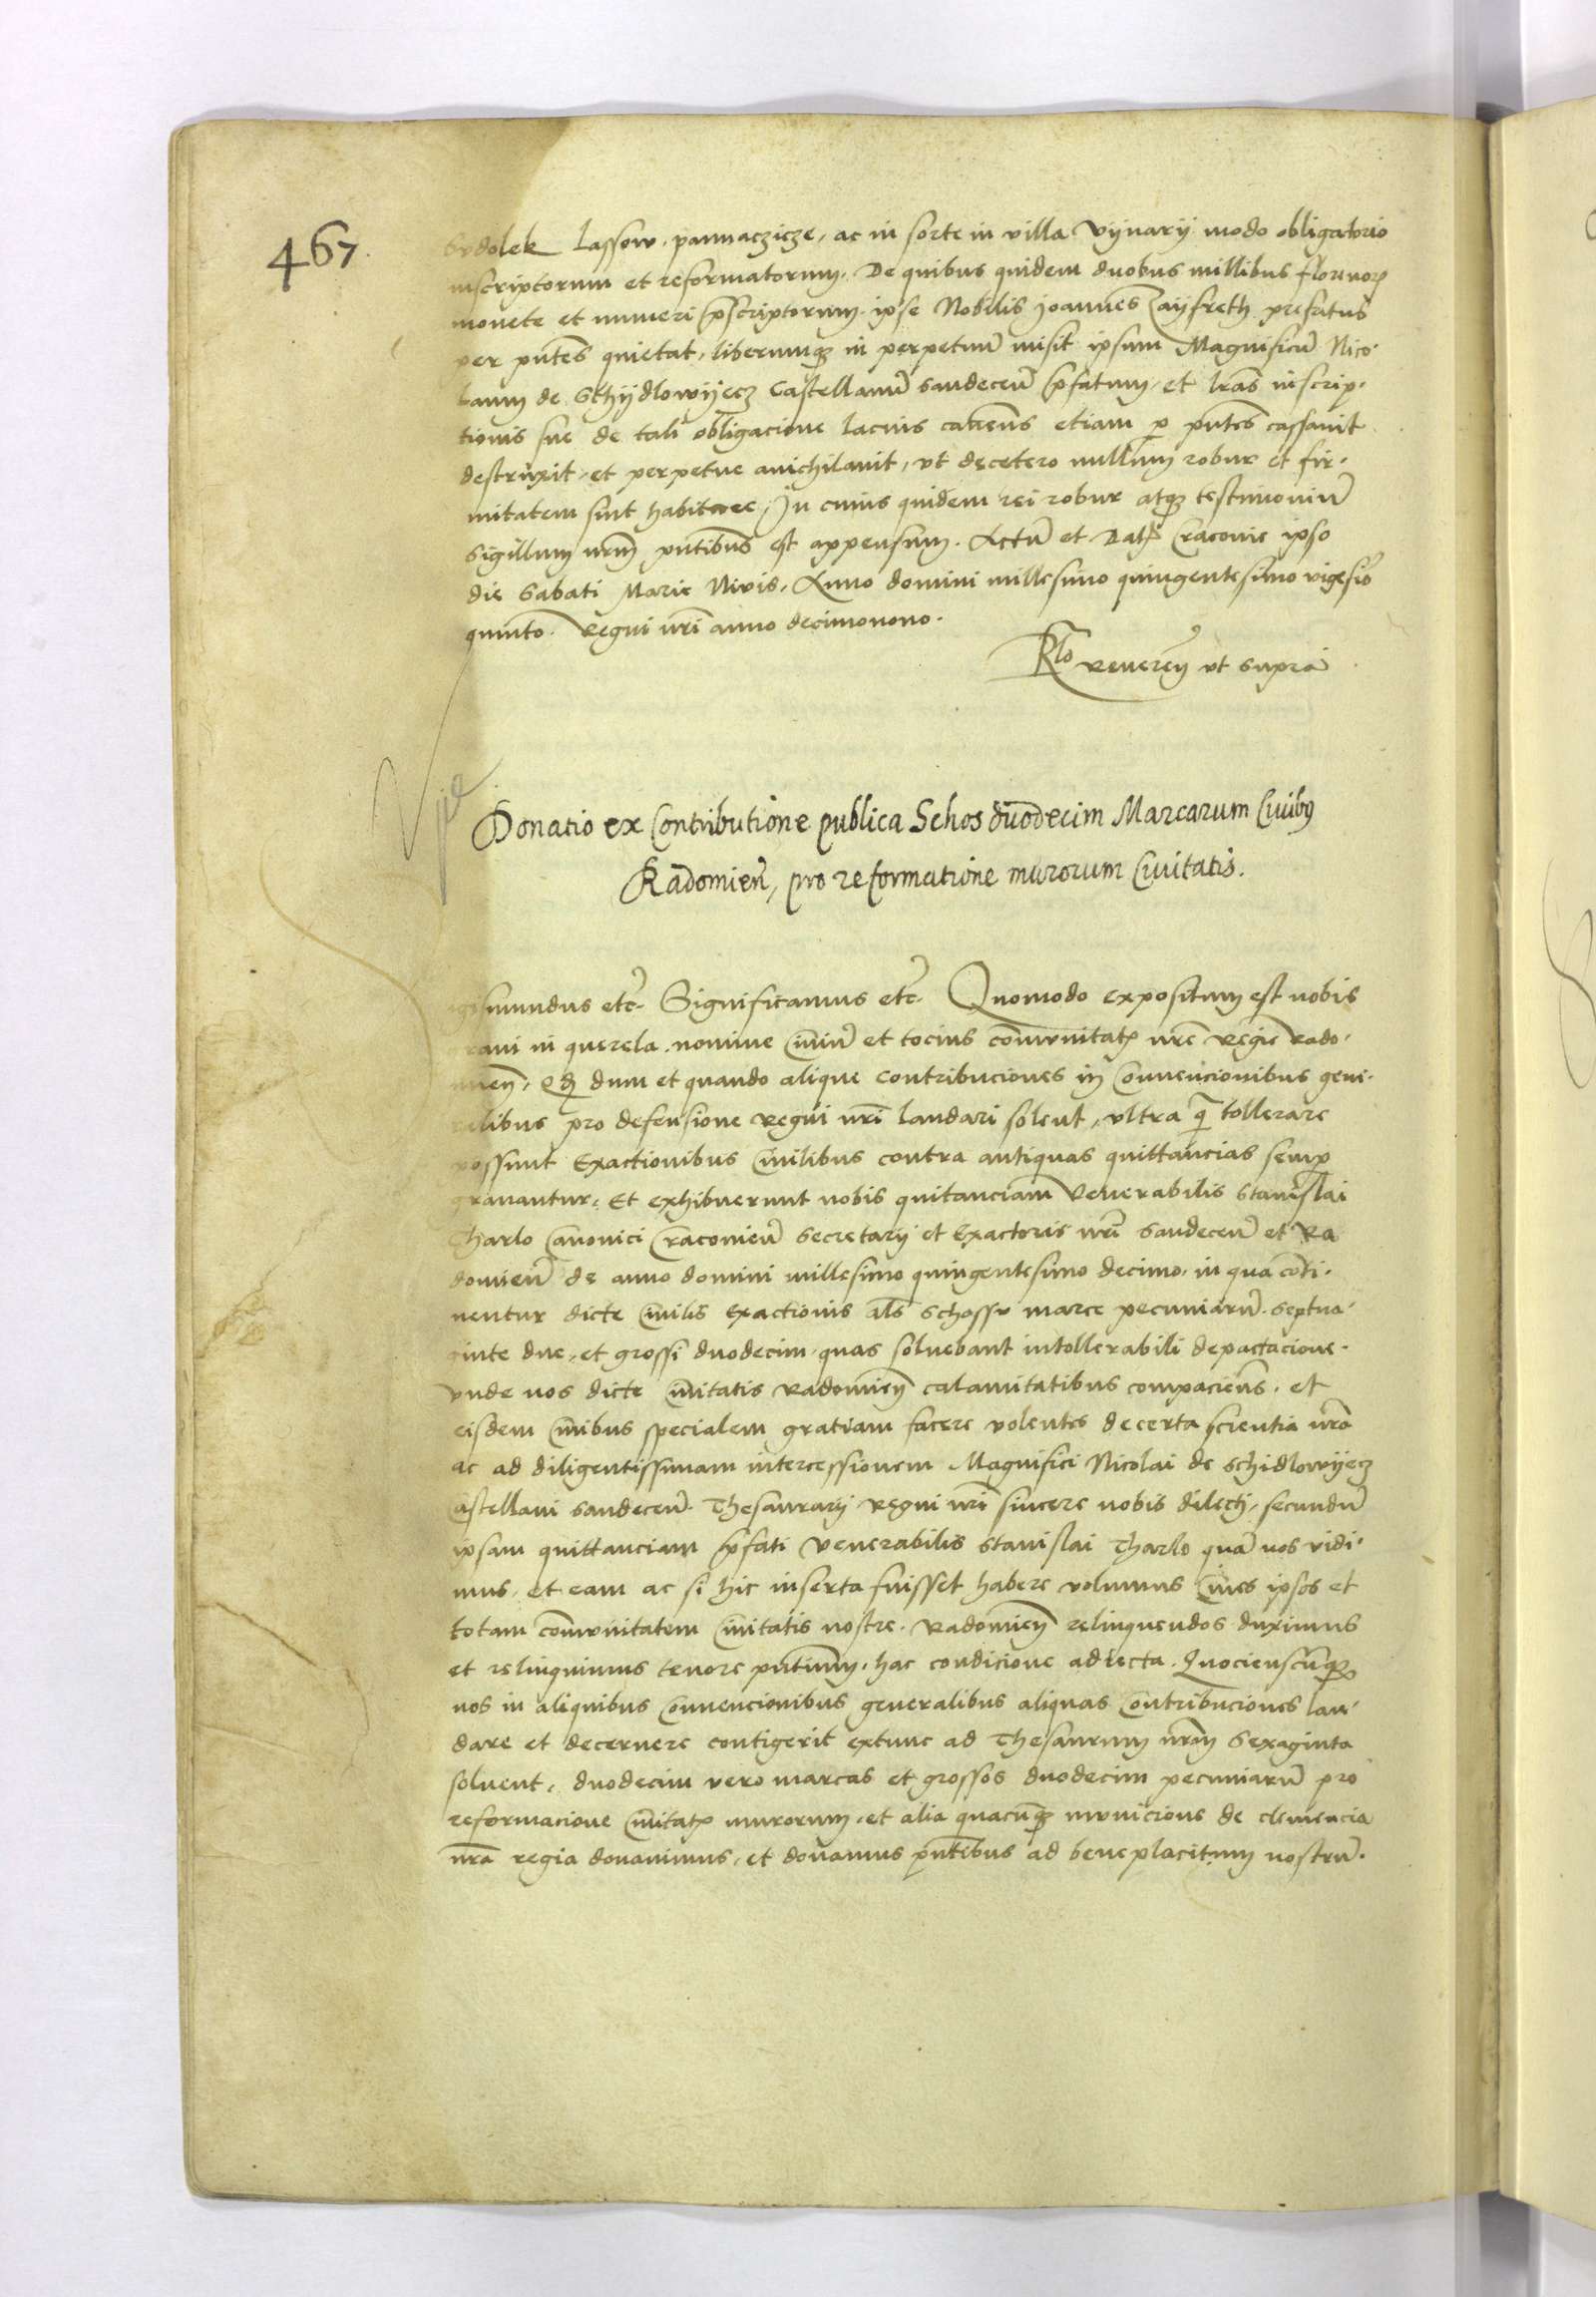 467.
Sydolek Lassow. pannaczicze, ac in sorte in villa Vynary modo obligatorio
inscriptorum et reformatorum. De quibus quidem duobus millibus florenoꝝ
monete et numeri p̄scriptorum. ipse Nobilis joannes Zayfreth prefatus
per pn̄tes quietat, liberumqꝫ in perpetuū misit ipsum Magnificū Nico-
laum de Schydlowyecz Castellanū Sandeceñ p̄fatum, et lr̄as inscrip-
tionis sue de tali obligacione lacius caveñs etiam ꝑ pn̄tes cassavit
destruxit, et perpetue anichilavit, vt decetero nullum robur et fir-
mitatem sint habiture, In cuius quidem rei robur atqꝫ testimoniū
Sigillum nr̄m pn̄tibus est appensum. Actū et Datꝭ Cracovie ipso
die Sabati Marie Nivis, Anno domini millesimo quingentesimo vigesiō
quinto. Regni nr̄i anno decimonono.
Rlō Reverēn vt supra
Donatio ex Contributione publica Schos duodecim Marcarum Civibꝰ
Radomieñ, pro reformatione murorum Civitatis.
gismundus etc̄. Significamus etc̄. Quomodo expositum est nobis
gravi in querela. nomine Civiū et tocius com̄unitatꝭ nr̄e Regie Rado-
mieñ, Qꝫ dum et quando alique contribuciones in Convencionibus gene-
ralibus pro defensione Regni nr̄i laudari solent, vltra q̄ tollerare
possunt Exactionibus Civilibus contra antiquas quittancias semꝑ
gravantur, Et exhibuerunt nobis quitanciam Venerabilis Stanislai
Tharlo Canonici Cracovieñ Secretarij et Exactoris nr̄i Sandeceñ et Ra
domieñ de anno domini millesimo quingentesimo decimo. in qua cōti-
nentur dicte Civilis Exactionis al̄s Schossu marce pecuniarū. Septua-
ginte due, et grossi duodecim. quas solvebant intollerabili depactacione.
vnde nos dicte Civitatis Radomieñ calamitatibus compacieñs. et
eisdem Civibus specialem gratiam facere volentes decerta scientia nr̄a
ac ad diligentissimam intercessionem Magnifici Nicolai de Schidlowyecz
Castellani Sandeceñ. Thesaurarij Regni nr̄i sincere nobis dilecti, secundū
ipsam quittanciam p̄fati Venerabilis Stanislai Tharlo quā nos vidi-
mus, et eam ac si hic inserta fuisset habere volumus Cives ipsos et
totam com̄unitatem Civitatis nostre. Radomieñ relinquendos duximus
et relinquimus tenore pn̄tium, hac condicione adiecta. Quociescūqꝫ
nos in aliquibus Convencionibus generalibus aliquas Contribuciones lau-
dare et decernere contigerit extunc ad Thesaurum nr̄m Sexaginta
solvent, duodecim vero marcas et grossos duodecim pecuniarū pro
reformacione Civitatꝭ murorum, et alia quacūqꝫ municione de clemencia
nr̄a regia donavimus, et donamus pn̄tibus ad beneplacitum nostrū.